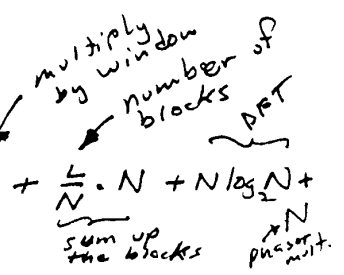 multiply
by window
number of
blocks
DFT
+ L/N · N + N log₂N +
N
sum up
the blocks
phasor
mult.